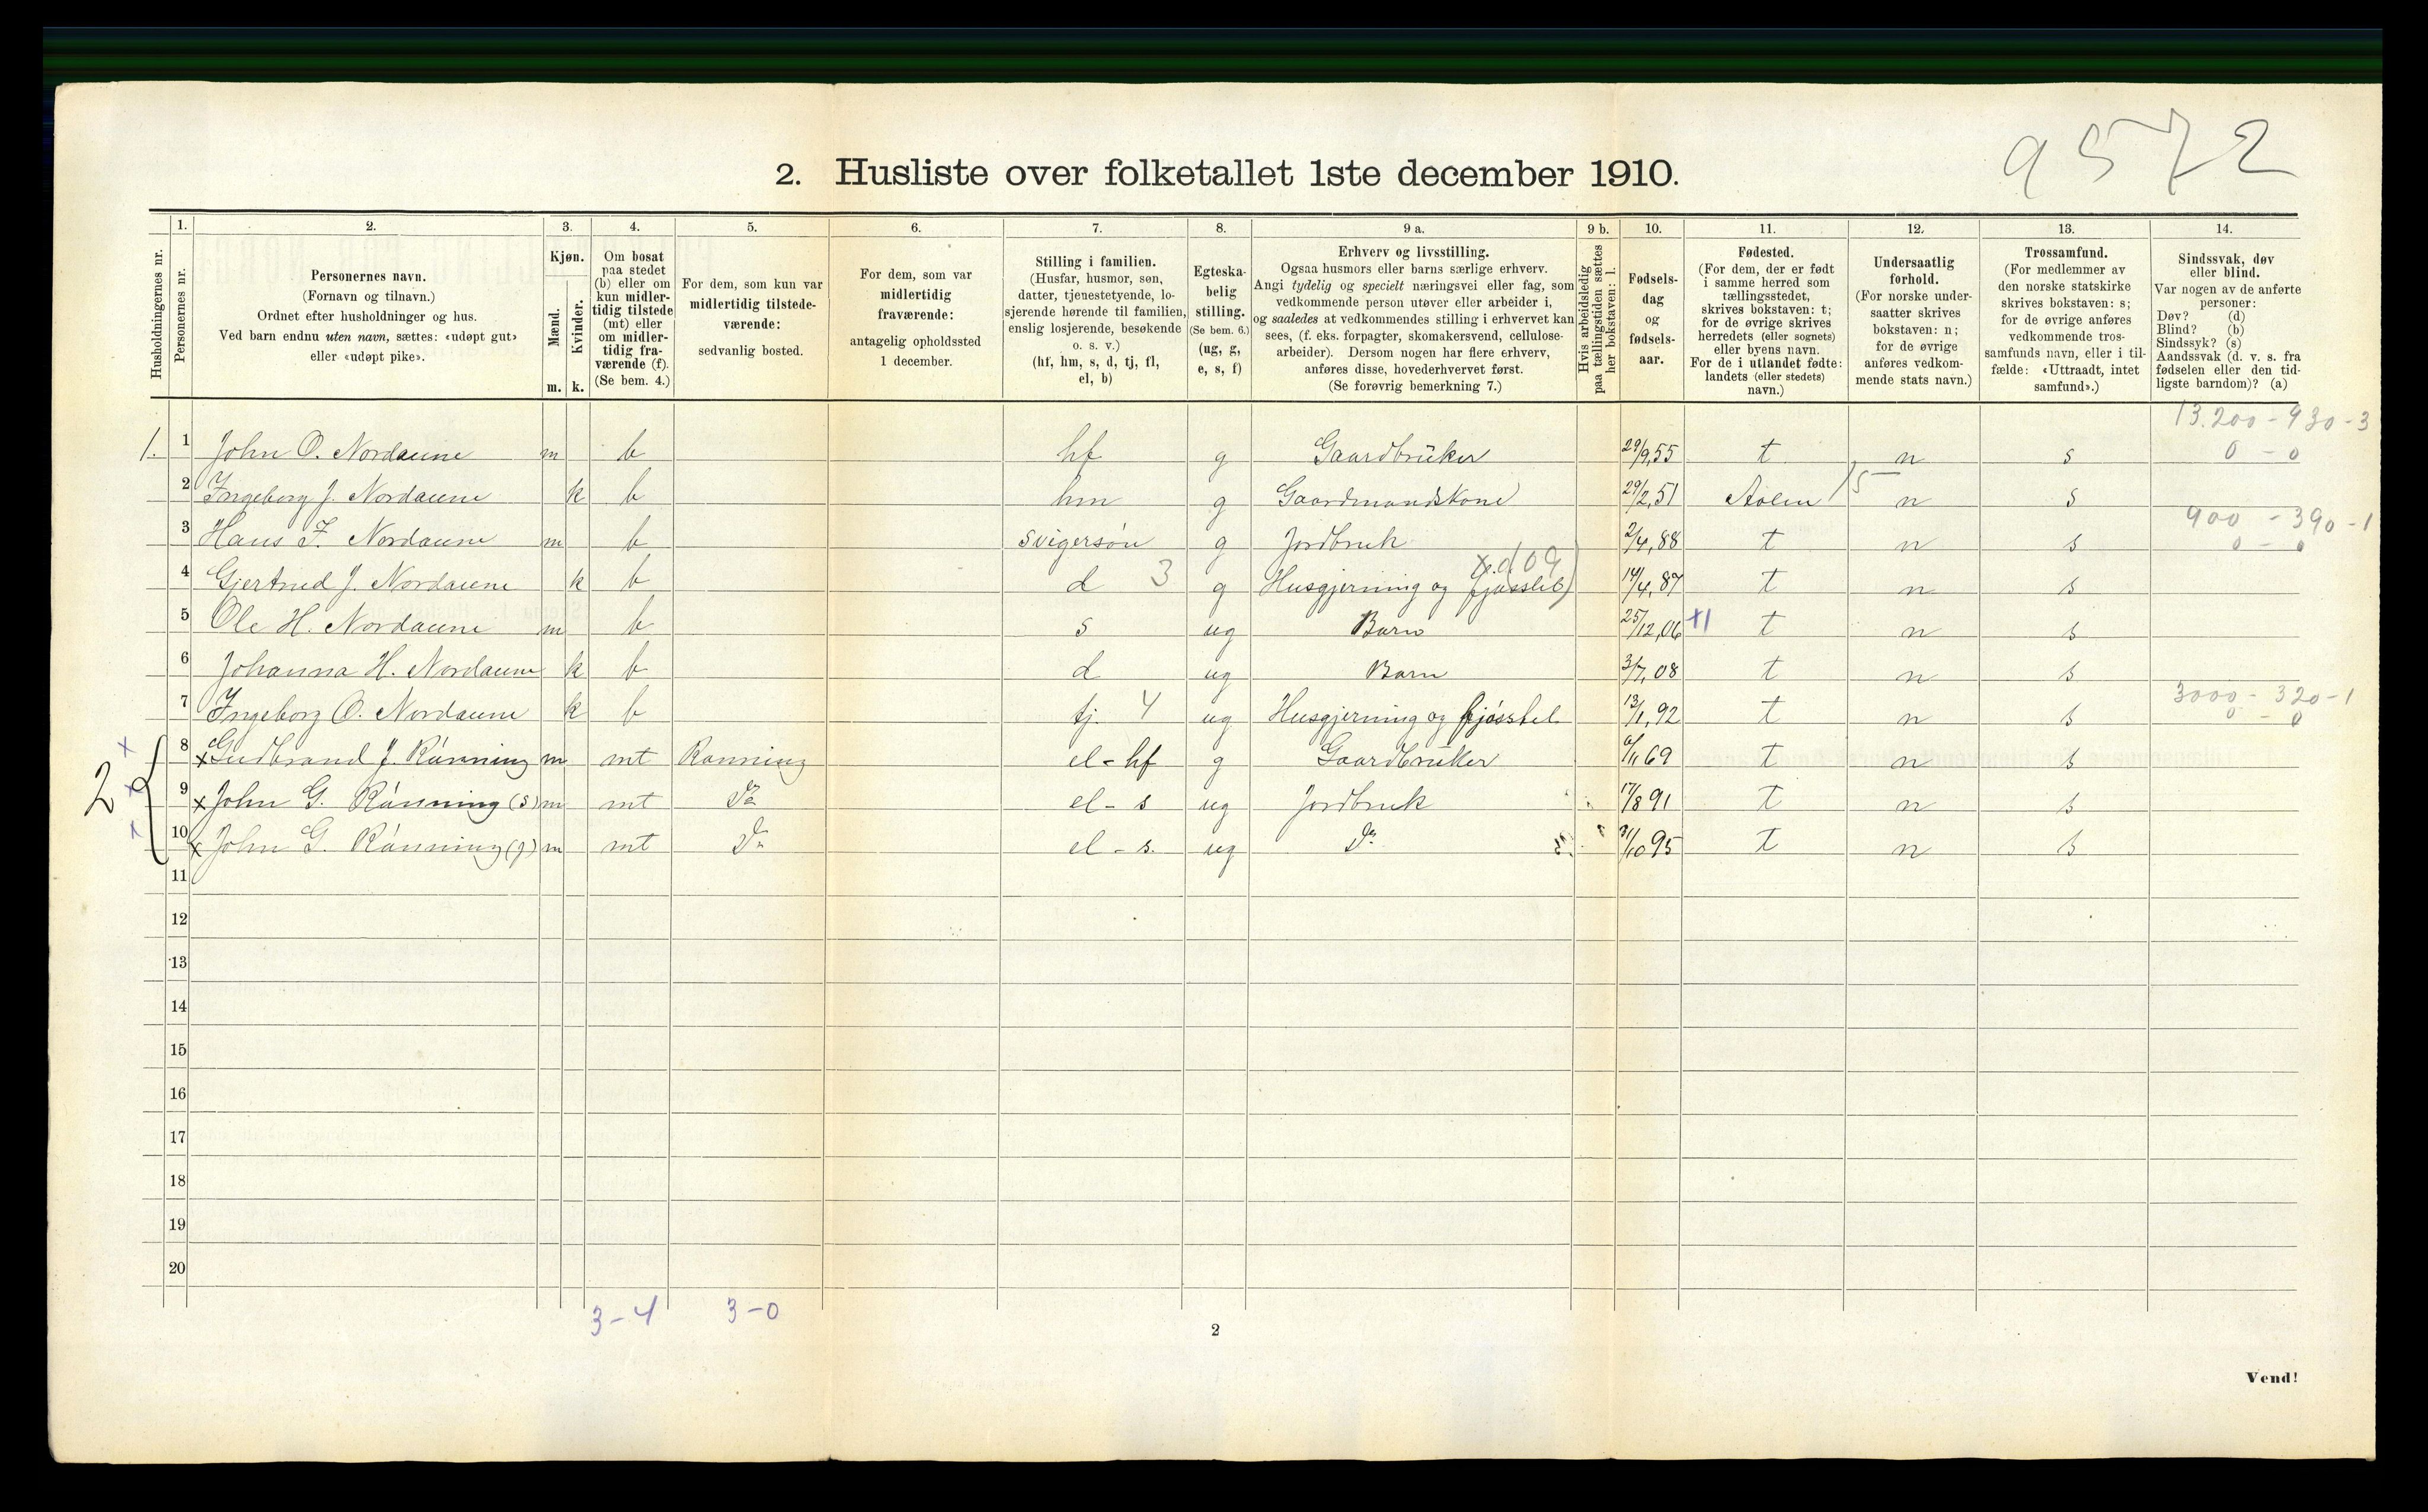 9572
2. Husliste over folketallet 1ste december 1910.
Husholdningernes nr.
1.
Personernes nr.
2.
Personernes navn.
(Fornavn og tilnavn.)
Ordnet efter husholdninger og hus.
Ved barn endnu uten navn, sættes: «udøpt gut»
eller «udøpt pike».
3.
Kjøn.
Mænd.
Kvinder.
m. k.
4.
Om bosat
paa stedet
(b) eller om
kun midler-
tidig tilstede
(mt) eller
om midler-
tidig fra-
værende (f).
(Se bem. 4.)
5.
For dem, som kun var
midlertidig tilstede-
værende:
sedvanlig bosted.
6.
For dem, som var
midlertidig
fraværende:
antagelig opholdssted
1 december.
7.
Stilling i familien.
(Husfar, husmor, søn,
datter, tjenestetyende, lo-
sjerende hørende til familien,
enslig losjerende, besøkende
o. s. v.)
(hf, hm, s, d, tj, fl,
el, b)
8.
Egteska-
belig
stilling.
(Se bem. 6.)
(ug, g,
e, s, f)
9 a.
Erhverv og livsstilling.
Ogsaa husmors eller barns særlige erhverv.
Angi tydelig og specielt næringsvei eller fag, som
vedkommende person utøver eller arbeider i,
og saaledes at vedkommendes stilling i erhvervet kan
sees, (f. eks. forpagter, skomakersvend, cellulose-
arbeider). Dersom nogen har flere erhverv,
anføres disse, hovederhvervet først.
(Se forøvrig bemerkning 7.)
9 b.
Hvis arbeidsledig
paa tællingstiden sættes
her bokstaven: l.
10.
Fødsels-
dag
og
fødsels-
aar.
11.
Fødested.
(For dem, der er født
i samme herred som
tællingsstedet,
skrives bokstaven: t;
for de øvrige skrives
herredets (eller sognets)
eller byens navn.
For de i utlandet fødte:
landets (eller stedets)
navn.)
12.
Undersaatlig
forhold.
(For norske under-
saatter skrives
bokstaven: n;
for de øvrige
anføres vedkom-
mende stats navn.)
13.
Trossamfund.
(For medlemmer av
den norske statskirke
skrives bokstaven: s;
for de øvrige anføres
vedkommende tros-
samfunds navn, eller i til-
fælde: «Uttraadt, intet
samfund».)
14.
Sindssvak, døv
eller blind.
Var nogen av de anførte
personer:
Døv? (d)
Blind? (b)
Sindssyk? (s)
Aandssvak (d. v. s. fra
fødselen eller den tid-
ligste barndom)? (a)
13.200 - 930 - 3
1. 1 John O. Nordaune m b hf g Gaardbruker 29/9,55 t n s 0 - 0
2 Ingeborg J. Nordaune k b hm g Gaardmandskone 29/2,51 Aalen 15 n s
900 - 390 - 1
3 Hans F. Nordaune m b svigersøn g Jordbruk 2/4,88 t n s 0 - 0
4 Gjertrud J. Nordaune k b d 3 g Husgjerning og fjøsstel 14/4,87 t n s
5 Ole H. Nordaune m b s ug Barn 25/12,06 t n s
6 Johanna H. Nordaune k b d ug Barn 3/7,08 t n s
3000 - 320 - 1
7 Ingeborg O. Nordaune k b tj. 4 ug Husgjerning og fjøsstel 13/1,92 t n s 0 - 0
2 8 x Gudbrand J. Rønning m mt Rønning el - hf g Gaardbruker 69 t n s
9 x John G. Rønning (s) m mt Do el - s ug Jordbruk 17/8 91 t n s
10 x John G. Rønning (j) m mt Do el - s. ug Do 31/10 95 t n s
11
12
13
14
15
16
17
18
19
20
3-4 3-0
2
Vend!